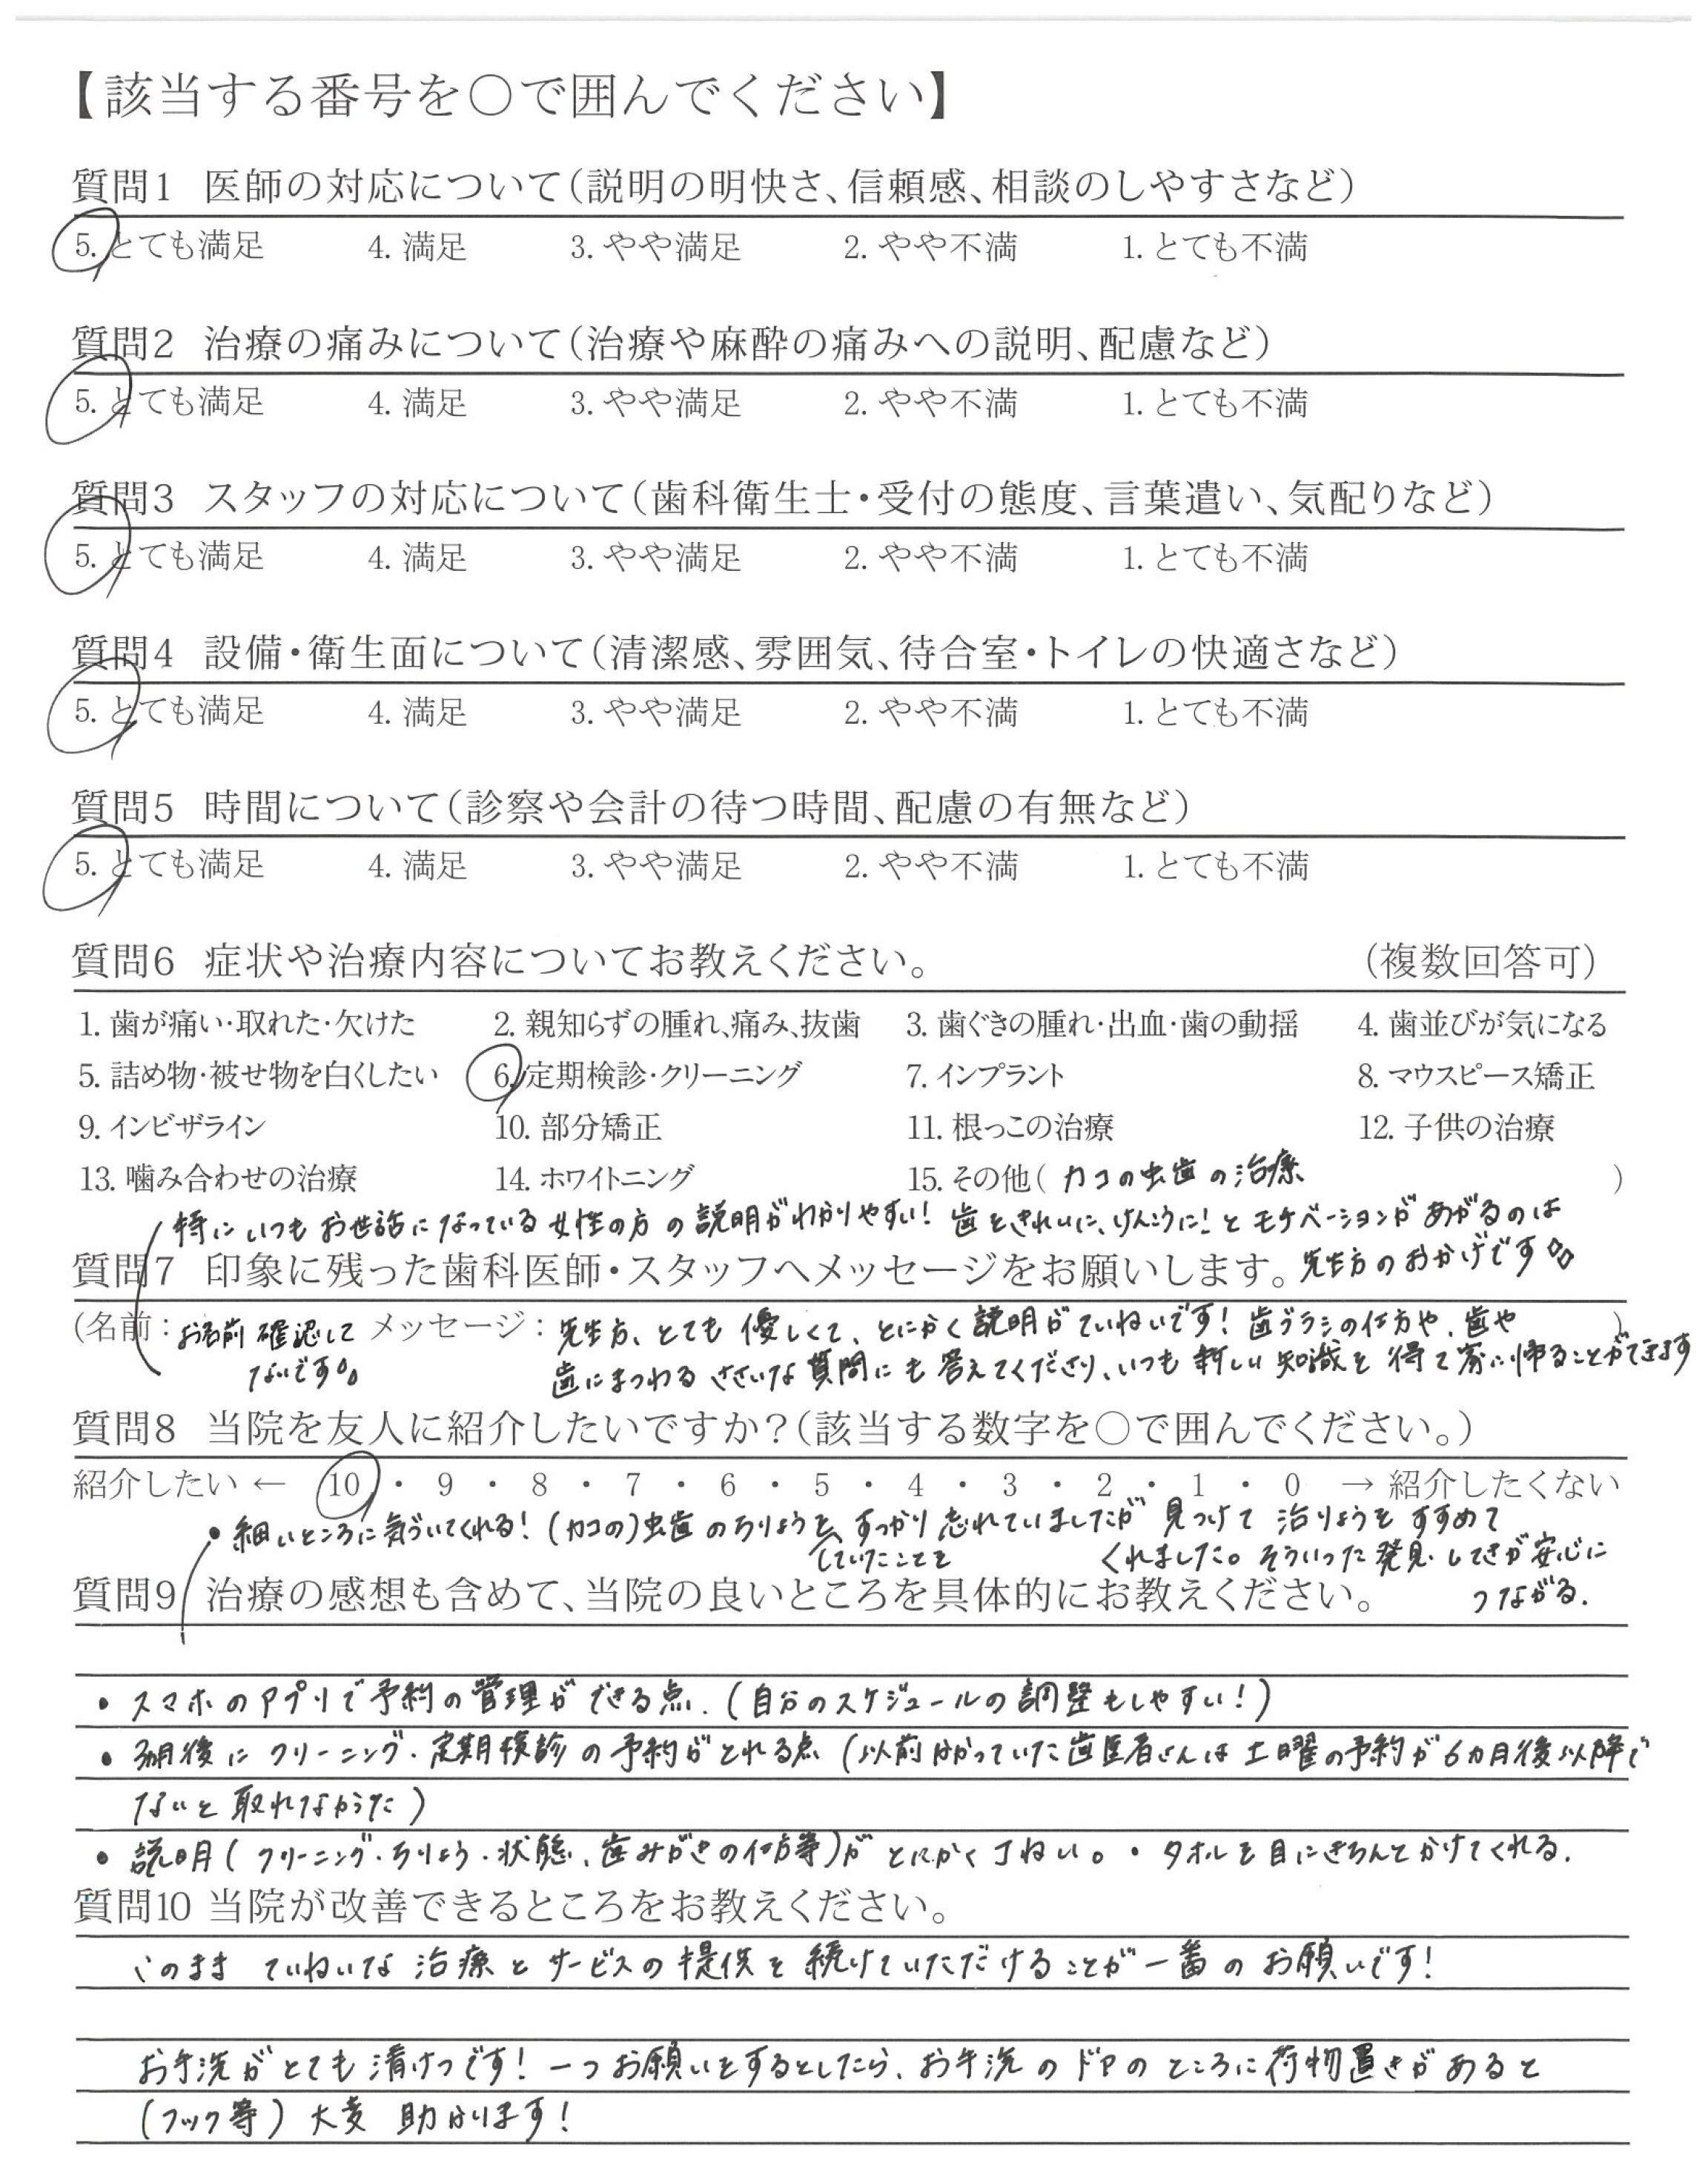 【該当する番号を○で囲んでください】
質問1 医師の対応について（説明の明快さ、信頼感、相談のしやすさなど）
5. とても満足 4. 満足 3. やや満足 2. やや不満 1. とても不満
質問2 治療の痛みについて（治療や麻酔の痛みへの説明、配慮など）
5. とても満足 4. 満足 3. やや満足 2. やや不満 1. とても不満
質問3 スタッフの対応について（歯科衛生士・受付の態度、言葉遣い、気配りなど）
5. とても満足 4. 満足 3. やや満足 2. やや不満 1. とても不満
質問4 設備・衛生面について（清潔感、雰囲気、待合室・トイレの快適さなど）
5. とても満足 4. 満足 3. やや満足 2. やや不満 1. とても不満
質問5 時間について（診察や会計の待つ時間、配慮の有無など）
5. とても満足 4. 満足 3. やや満足 2. やや不満 1. とても不満
質問6 症状や治療内容についてお教えください。 （複数回答可）
1. 歯が痛い・取れた・欠けた 2. 親知らずの腫れ、痛み、抜歯 3. 歯ぐきの腫れ・出血・歯の動揺 4. 歯並びが気になる
5. 詰め物・被せ物を白くしたい 6. 定期検診・クリーニング 7. インプラント 8. マウスピース矯正
9. インビザライン 10. 部分矯正 11. 根っこの治療 12. 子供の治療
13. 噛み合わせの治療 14. ホワイトニング 15. その他（ カコの虫歯の治療 ）
特にいつもお世話になっている女性の方の説明がわかりやすい！ 歯をきれいに、けんこうに！とモチベーションがあがるのは
先生方のおかげです
質問7 印象に残った歯科医師・スタッフへメッセージをお願いします。
（名前：お名前確認して メッセージ：先生方、とても優しくて、とにかく説明がていねいです！歯ブラシの仕方や、歯や ）
ないです。 歯にまつわるささいな質問にも答えてくださり、いつも新しい知識を得て家に帰ることができます
質問8 当院を友人に紹介したいですか？（該当する数字を○で囲んでください。）
紹介したい ← 10 ・ 9 ・ 8 ・ 7 ・ 6 ・ 5 ・ 4 ・ 3 ・ 2 ・ 1 ・ 0 → 紹介したくない
・細いところに気づいてくれる！（カコの）虫歯のちりょうを すっかり忘れていましたが 見つけて 治りょうをすすめて
していたことを くれました。そういった発見・してきが安心に
質問9 治療の感想も含めて、当院の良いところを具体的にお教えください。 つながる.
・スマホのアプリで予約の管理ができる点.（自分のスケジュールの調整もしやすい！）
・3ヵ月後に クリーニング・定期検診の予約がとれる点（以前かかっていた歯医者さんは土曜の予約が6カ月後以降で
ないと取れなかった）
・説明（クリーニング・ちりょう・状態、歯みがきの仕方等）がとにかく丁ねい。・タオルを目にきちんとかけてくれる.
質問10 当院が改善できるところをお教えください。
このまま ていねいな治療とサービスの提供を続けていただけることが一番のお願いです！
お手洗がとても清けつです！一つお願いをするとしたら、お手洗のドアのところに荷物置きがあると
（フック等）大変 助かります！